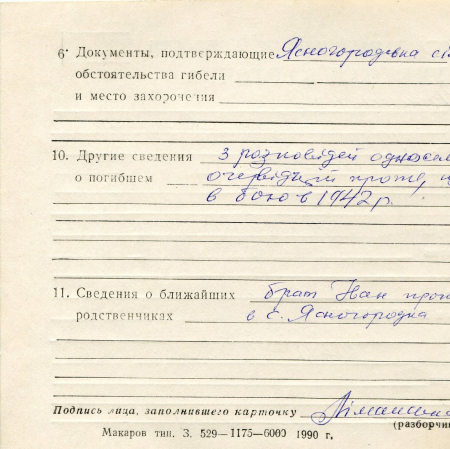 6. Документы, подтверждающие Ясногородська сіл
обстоятельства гибели
и место захоронения
10. Другие сведения З розповідей односел
о погибшем
в бою в 1942 р.
11. Сведения о ближайших брат Іван прож
родственниках в с. Ясногородка
Подпись лица, заполнившего карточку
(разборчи
Макаров тип. З. 529—1175—6000 1990 г.